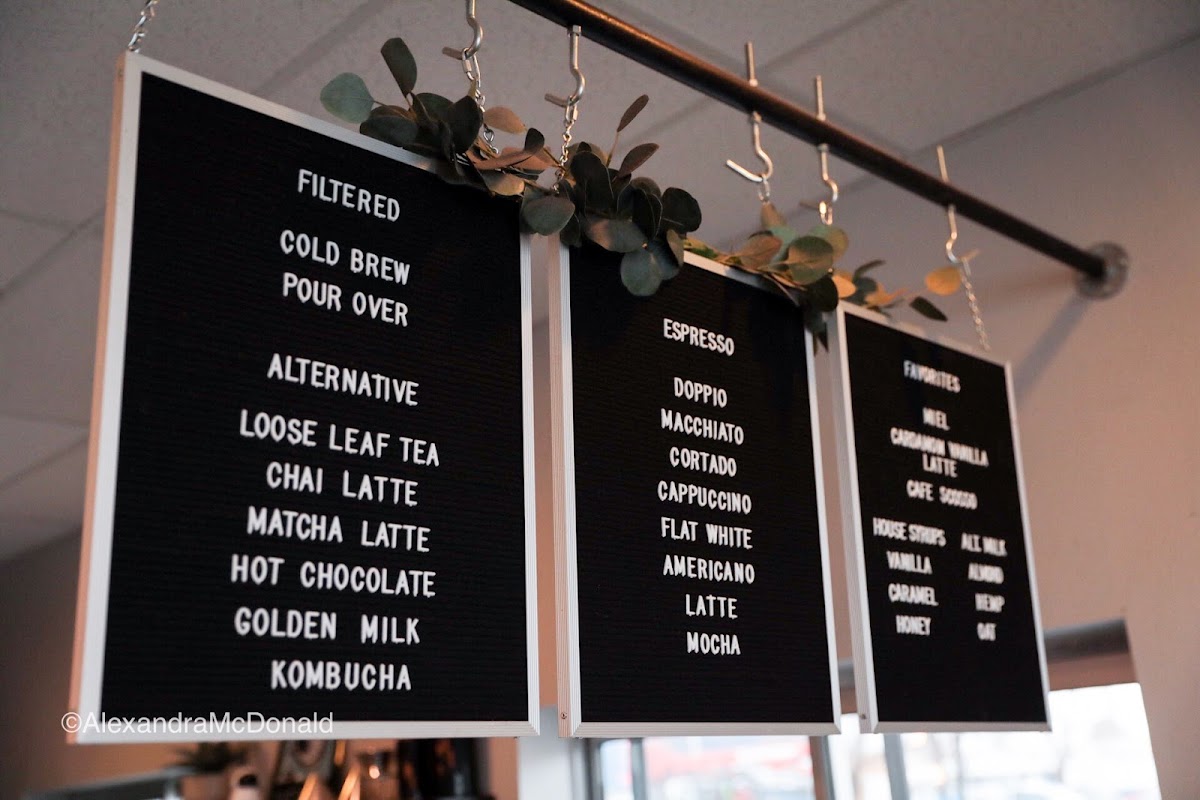 FILTERED
COLD BREW
POUR OVER
ALTERNATIVE
LOOSE LEAF TEA
CHAI LATTE
MATCHA LATTE
HOT CHOCOLATE
GOLDEN MILK
KOMBUCHA
ESPRESSO
DOPPIO
MACCHIATO
CORTADO
CAPPUCCINO
FLAT WHITE
AMERICANO
LATTE
MOCHA
FAVORITES
MIEL
CARDAMON VANILLA
LATTE
CAFE SCOSSO
HOUSE SYRUPS ALT. MILK
VANILLA ALMOND
CARAMEL HEMP
HONEY OAT
©AlexandraMcDonald